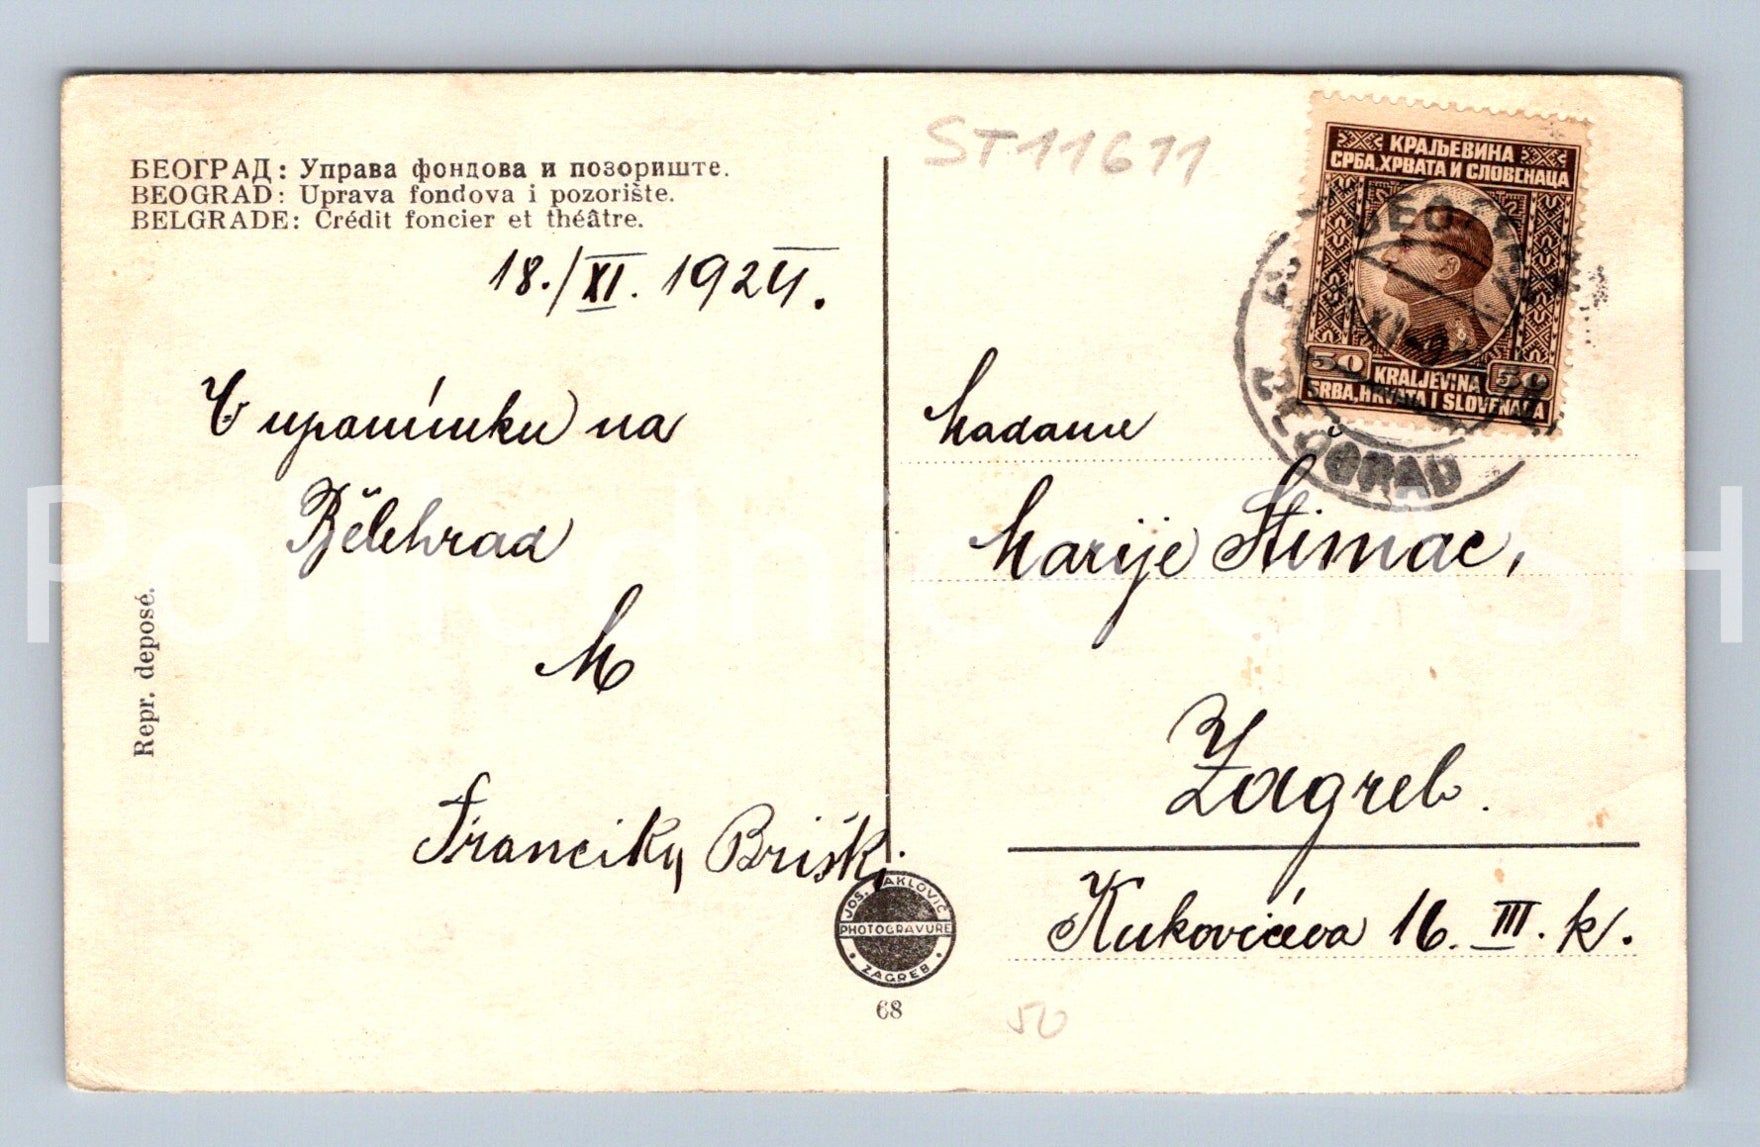 БЕОГРАД: Управа фондова и позориште.
BEOGRAD: Uprava fondova i pozorište.
BELGRADE: Crédit foncier et théâtre.
18./XI. 1924.
V upomínku na
Bělehrad
M
Franciky Briški
Repr. deposé.
JOS. ČAKLOVIĆ
PHOTOGRAVURE
ZAGREB
68
ST11611
КРАЉЕВИНА
СРБА, ХРВАТА И СЛОВЕНАЦА
50
50
KRALJEVINA
SRBA, HRVATA I SLOVENACA
BEOGRAD
Madame
Marije Štimac,
Zagreb.
Kukovićeva 16. III. k.
50